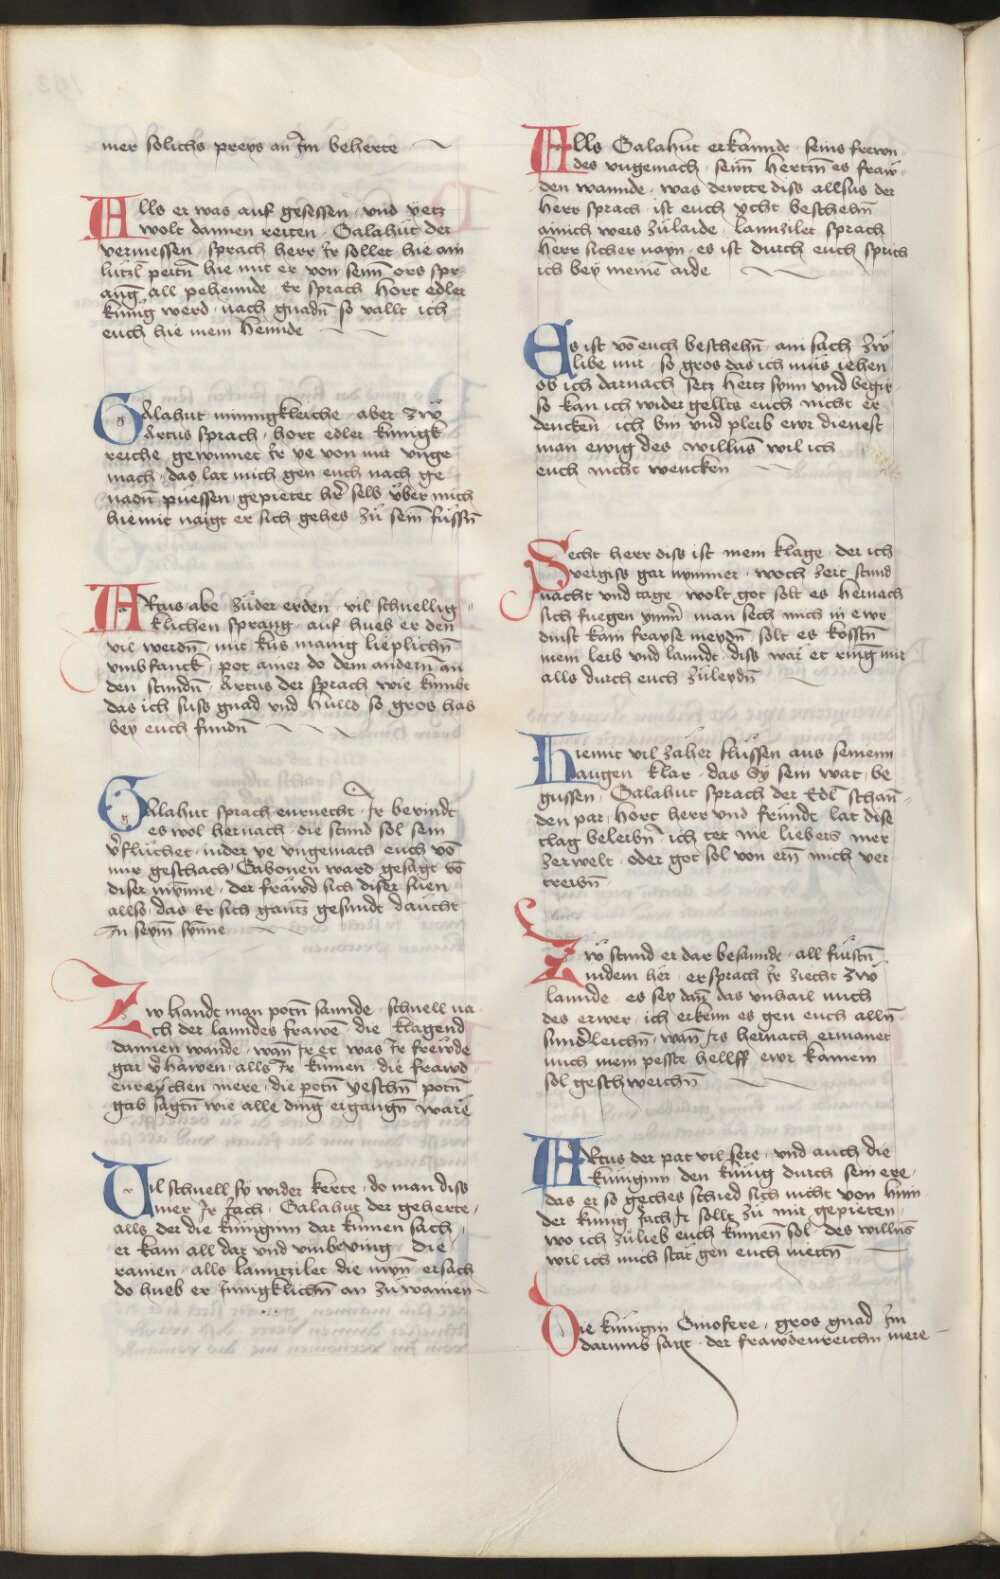 mer solichs preys an Im beherte
Alls er was auf gesessen · vnd yetz
wolt dannen reiten · Galahut der
vermessen · sprach herr Ir sollet hie ain
lützl peitn̄ hie mit er von sein̄ ors spr-
ang all pehennde · Er sprach hort edler
künig werd · nach gnadn̄ so vallt ich
euch hie mein hennde
Galahut mynnigkleiche · aber zw̆
Artus sprach · hort edler künigk
reiche gewinnet Ir ye von mir vnge
mach · das lat mich gen euch nach ge
nadn̄ püessen · gepietet hr̄ selb v̈ber mich
hiemit naigt er sich gehes zü sein̄ füssn̄
Artus abe zü der erden · vil schnellig-
klichen sprang · auf hueb er den
vil werdn̄ · mit kus manig lieplichn̄
vmbfanck · pot ainer do dem andern an
den stundn̄ · Artus der sprach wie kumbt
das ich suss gnad vnd hulld so gros hab
bey euch fundn̄
Galahut sprach entnecht · Ir bevindt
es wol hernach · die stund sol sein
v̄fluchet · inder ye vngemach euch vō
mir geschach · Gabonen ward gesagt vō
diser mynne · der fräwd sich diser suen
allso · das Er sich gantz gesundt daücht
In seym̄ synne
Zw handt man potn̄ sannde · schnell na-
ch der lanndes frawē · die klagend
dannen wande · wan̄ Ir et was Ir frewde
gar v̄hawen · alls Ir kumen · die fräwd
enreychen mere · die potn̄ yeschn̄ potn̄
gab sagtn̄ wie alle ding ergangn̄ ware
Vil schnell sy wider kerte · do man diss
mer Ir Jach · Galahut der geherte ·
alls der die küniginn dar kumen sach ·
er kam all dar vnd vmbeving · die
rainen · alls lanntzilet die myn̄ ersach
do hueb er Innigklichn̄ an zü wainen
Alls Galahut erkannde · seins frewn-
des vngemach · sein̄ hertzn̄ es fraw-
den wannde · was dewtte diss allsus der
herr sprach · ist euch ycht beschehn̄
ainich wers zü laide · lannzilet sprach
herr sicher nayn · es ist durch euch sprich
ich bey meinē aide
Es ist vō euch beschehn̄ · ain sach zw̆
libe mir · so gros das ich mus iehen
ob ich darnach setz hertz synn vnd begir ·
so kan ich wider gellts euch nicht er-
dencken · ich bin vnd pleib ewr dienest
man ewig des willn̄s wil ich
euch nicht wencken
Secht herr diss ist mein klage · der ich
vergiss gar nymmer · woch zeit stund
nacht vnd tage · wolt got solt es hernach
sich fuegen ymm̄ · man sech mich in ewr
dinst kain frayse meydn̄ · solt es kosstn̄
mein leib vnd lanndt · diss war et ring mir
alls durch euch zü leydn̄
Hiemit vil zäher flüssen aus seinenn
augen klar · das Sy sein wat · be-
gussen · Galahut sprach der Edl schan̄-
den par · hort herr vnd freündt lat dise
clag beleibn̄ · ich tet nie liebers mer
zer welt · oder got sol von ern̄ mich ver-
treibn̄
Zw̆ stund er dar besannde · all fürstn̄
in dem her · er sprach Ir ziecht zw̆
lannde · es sey dan̄ das vnhail mich
des erwer · ich erkenn es gen euch alln̄
sunderleichn̄ · wan̄ Irs hernach ermanet
mich mein pesste hellff ewr kainem
sol geschweichn̄
Artus der pat vil sere · vnd auch die
küniginn den künig durch sein ere ·
das er so geches schied sich nicht von hinn ·
der künig Jach Ir sollt zü mir gepieten ·
wo ich zü lieb euch kumen̄ sol · des willn̄s
wil ich mich stät gen euch nietn̄
Die künigin Ginofere · gros gnad Im
darumb sagt · der frawdenreichn̄ mere